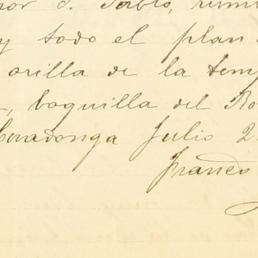 nor d. Pablo, rumb
y todo el plan
orilla de la tem
boquilla del Ro
Covadonga Julio 2
Franco